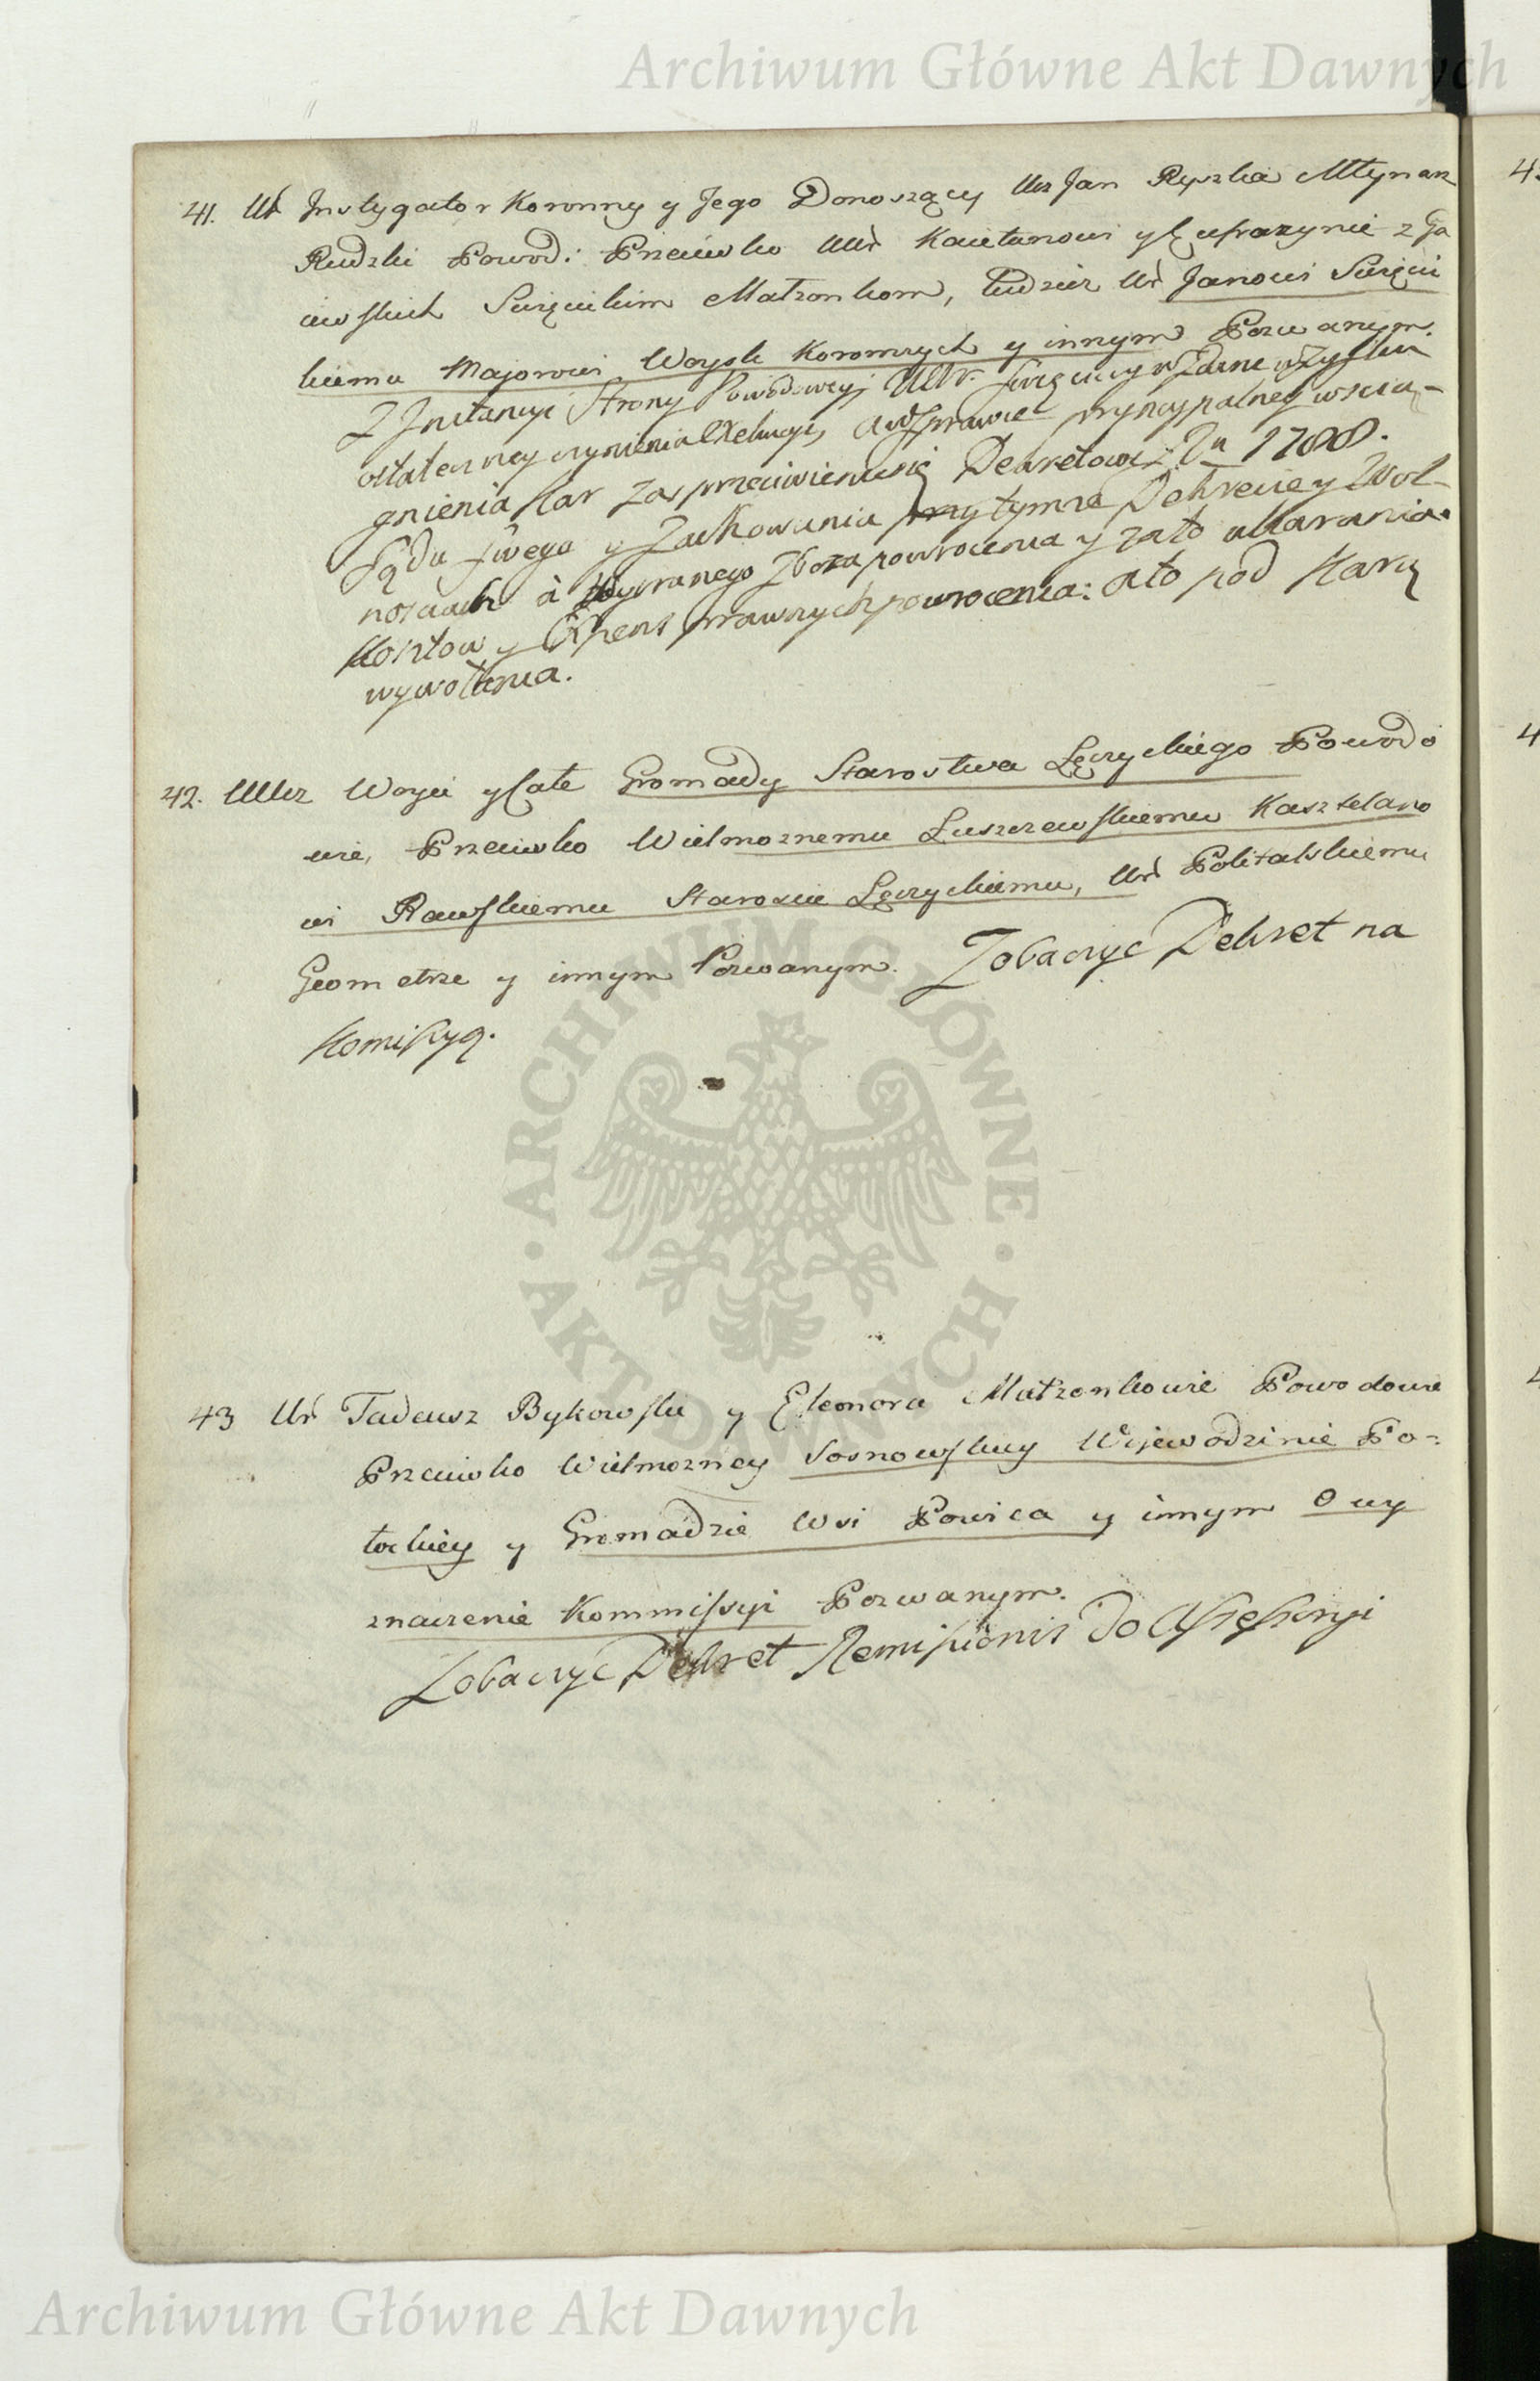 Archiwum Główne Akt Dawnych
41. Ur Instygator Koronny y Jego Donoszący Ucz Jan Ryszka Młynarz
Rudzki Powod: Przeciwko UUr Kaietanowi y Eufrazynie z Ga
iewskich Swięcickim Małżonkom, tudzież Ur Janowi Swięci
ckiemu Majorowi Woysk Koronnych y innym Pozwanym.
Z Instancyi Strony Powodowey UUr. Swięciccy w Zdanie w Zysku
ostateczney czynienia Exekucyi, a w Sprawie pryncypalney wscią-
gnienia kar za sprzeciwienie się Dekretowi z Ru 1788.
Sądu swego y Zachowania przy tymże Dekrecie y Wol-
nosciach à wybranego Zboża powrocenia y za to ukarania
kosztow y Expens prawnych powrocenia: a to pod karą
wywołania.
42. UUcz Woyci y Całe Gromady Starostwa Łęczyckiego Powodo
wie, Przeciwko Wielmożnemu Łuszczewskiemu Kasztelano
wi Rawskiemu Staroscie Łęczyckiemu, Ur Politalskiemu
Geometrze y innym Pozwanym. Zobaczyć Dekret na
Komissyą.
43 Ur Tadeusz Bykowski y Eleonora Małżonkowie Powodowie
Przeciwko Wielmożney Sosnowskiey Wojewodzinie Po-
łockiey y Gromadzie Wsi Powica y innym O wy
znaczenie Kommissyi Pozwanym.
Zobaczyć Dekret Remissionis do Assessoryi
ARCHIWUM GŁÓWNE · AKT DAWNYCH ·
Archiwum Główne Akt Dawnych